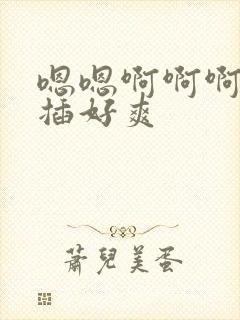 嗯嗯啊啊啊
插好爽
萧兒美蛋